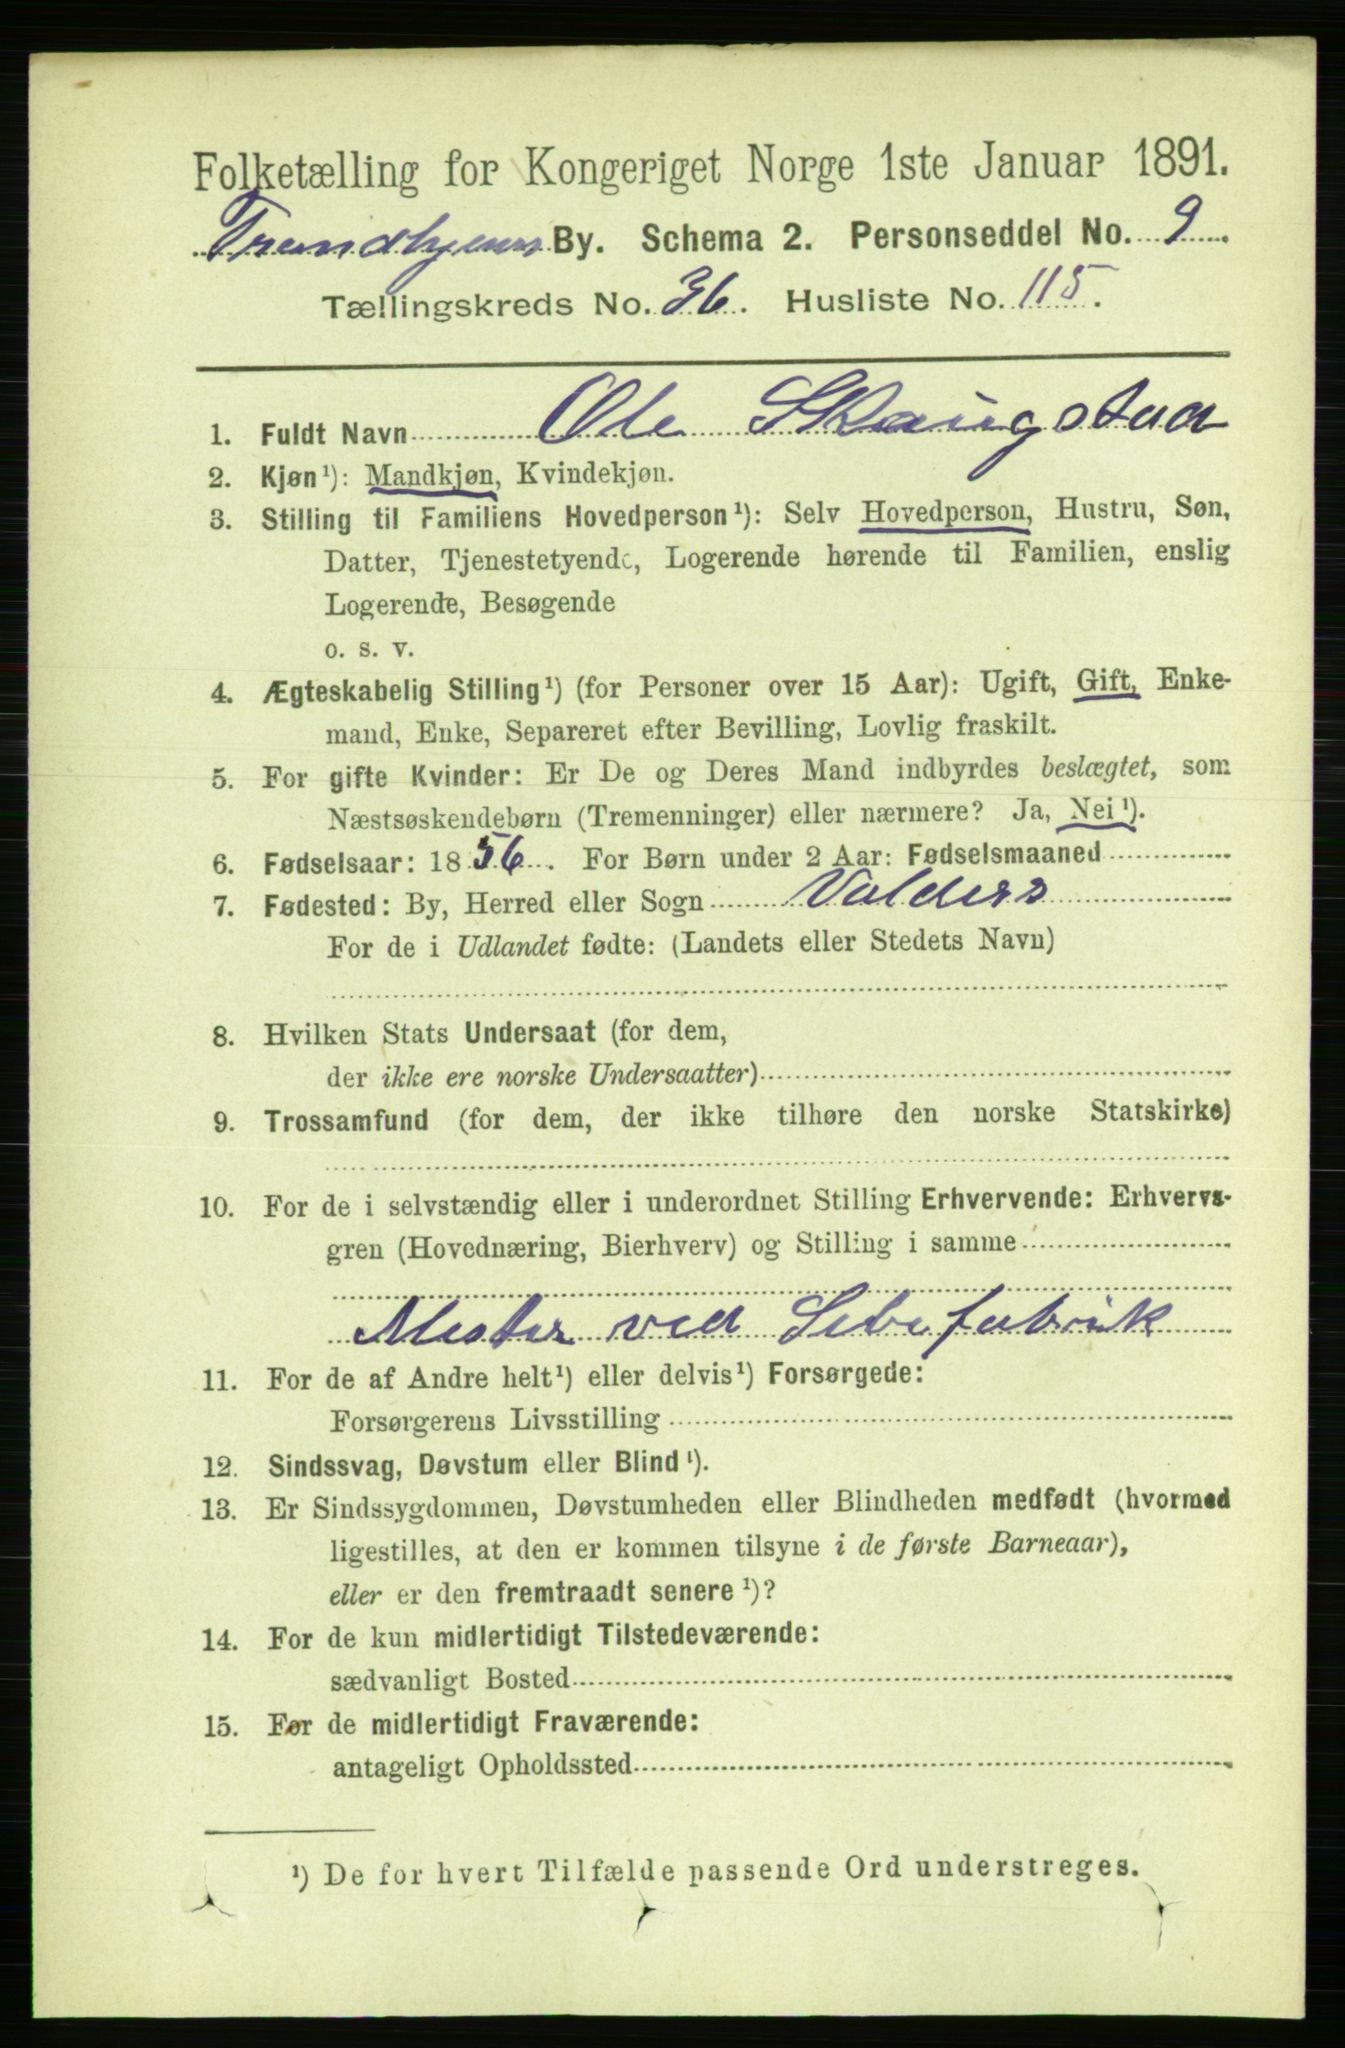 Folketælling for Kongeriget Norge 1ste Januar 1891.
Trondhjems By. Schema 2. Personseddel No. 9.
Tællingskreds No. 36. Husliste No. 115.
1. Fuldt Navn Ole Skaugstad
2. Kjøn¹): Mandkjøn, Kvindekjøn.
3. Stilling til Familiens Hovedperson¹): Selv Hovedperson, Hustru, Søn,
Datter, Tjenestetyende, Logerende hørende til Familien, enslig
Logerende, Besøgende
o. s. v.
4. Ægteskabelig Stilling¹) (for Personer over 15 Aar): Ugift, Gift, Enke-
mand, Enke, Separeret efter Bevilling, Lovlig fraskilt.
5. For gifte Kvinder: Er De og Deres Mand indbyrdes beslægtet, som
Næstsøskendebørn (Tremenninger) eller nærmere? Ja, Nei¹).
6. Fødselsaar: 1856. For Børn under 2 Aar: Fødselsmaaned
7. Fødested: By, Herred eller Sogn Valders
For de i Udlandet fødte: (Landets eller Stedets Navn)
8. Hvilken Stats Undersaat (for dem,
der ikke ere norske Undersaatter)
9. Trossamfund (for dem, der ikke tilhøre den norske Statskirke)
10. For de i selvstændig eller i underordnet Stilling Erhvervende: Erhvervs-
gren (Hovednæring, Bierhverv) og Stilling i samme
Mester ved Sebefabrik
11. For de af Andre helt¹) eller delvis¹) Forsørgede:
Forsørgerens Livsstilling
12. Sindssvag, Døvstum eller Blind¹).
13. Er Sindssygdommen, Døvstumheden eller Blindheden medfødt (hvormed
ligestilles, at den er kommen tilsyne i de første Barneaar),
eller er den fremtraadt senere¹)?
14. For de kun midlertidigt Tilstedeværende:
sædvanligt Bosted
15. For de midlertidigt Fraværende:
antageligt Opholdssted
¹) De for hvert Tilfælde passende Ord understreges.